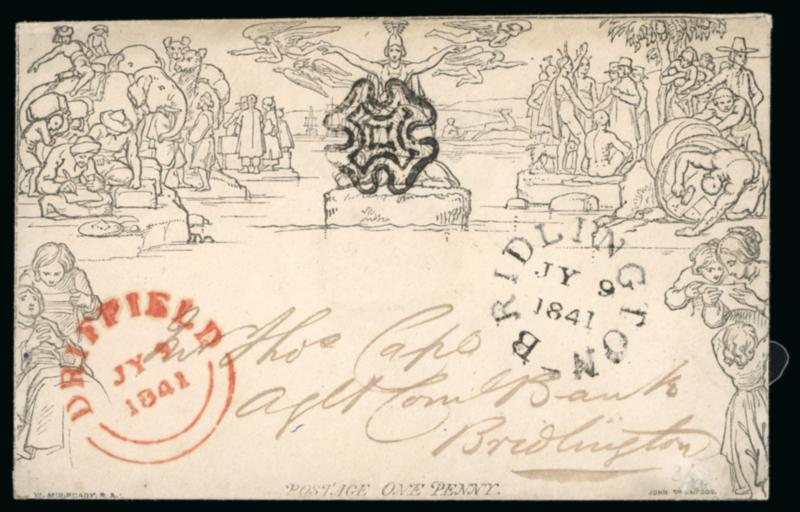 BRIDLINGTON
JY 9
1841
DRIFFIELD
JY 9
1841
Mr Thos Cape
Agt Coml Bank
Bridlington
W. MULREADY. R. A.
POSTAGE ONE PENNY.
JOHN THOMPSON.